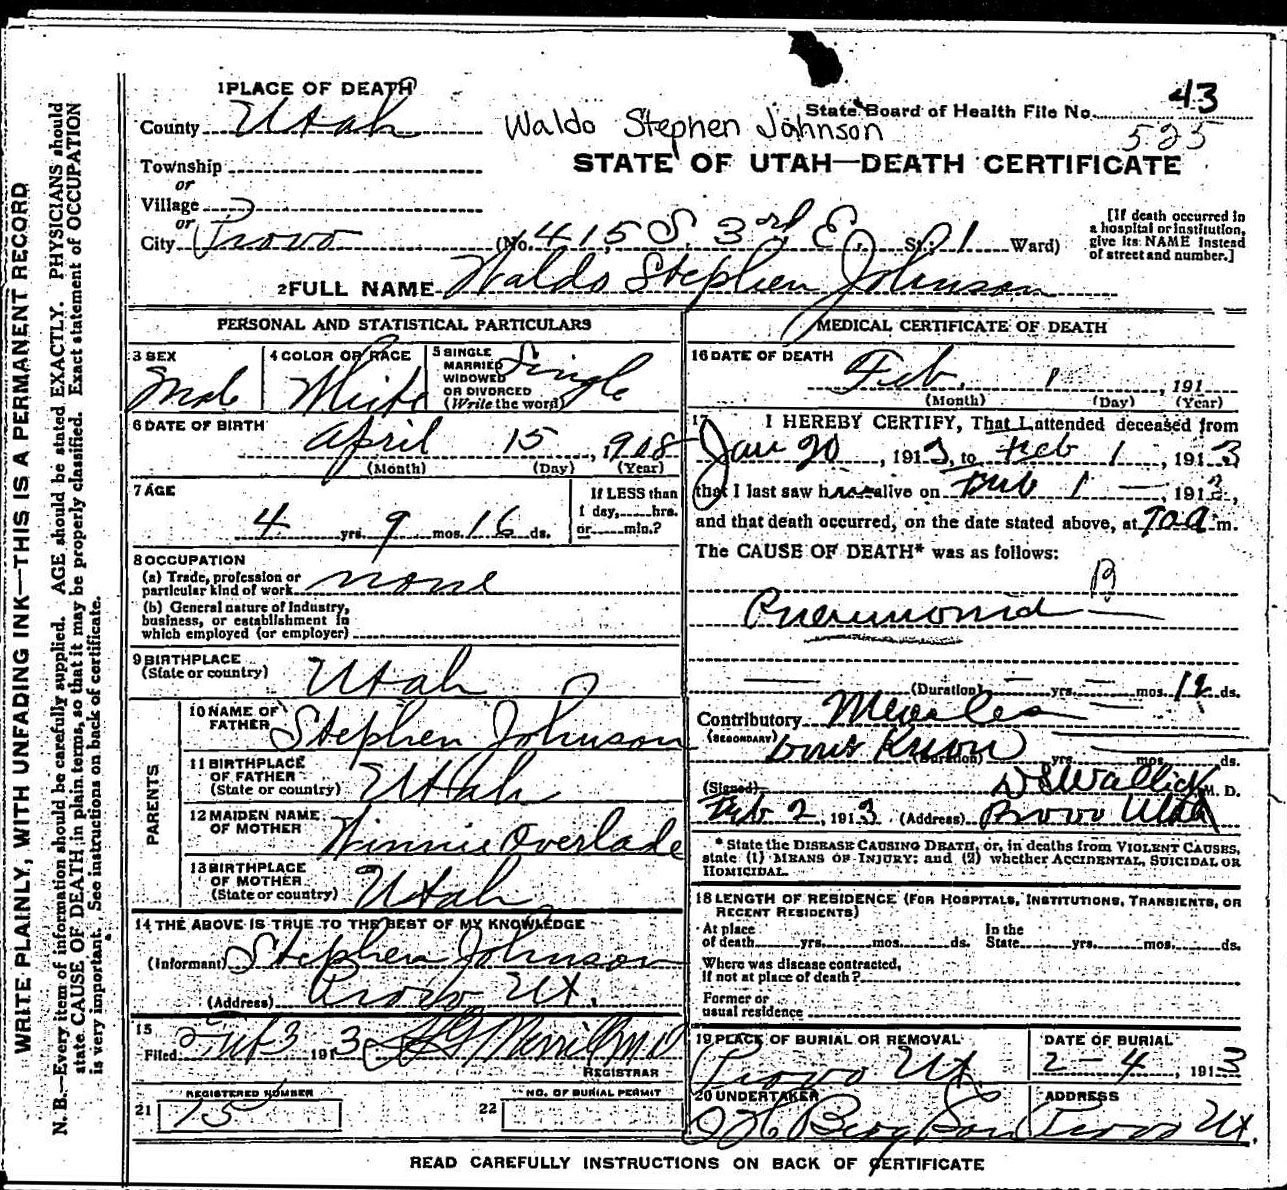 WRITE PLAINLY, WITH UNFADING INK—THIS IS A PERMANENT RECORD
N. B.—Every item of information should be carefully supplied. AGE should be stated EXACTLY. PHYSICIANS should
state CAUSE OF DEATH in plain terms, so that it may be properly classified. Exact statement of OCCUPATION
is very important. See instructions on back of certificate.
1 PLACE OF DEATH
County Utah
Township
or
Village
or
City Provo
Waldo Stephen Johnson
State Board of Health File No. 43
525
STATE OF UTAH—DEATH CERTIFICATE
(No. 415 S. 3rd E. St.; 1 Ward)
[If death occurred in
a hospital or institution,
give its NAME instead
of street and number.]
2 FULL NAME Waldo Stephen Johnson
PERSONAL AND STATISTICAL PARTICULARS
3 SEX
Male
4 COLOR OR RACE
White
5 SINGLE
MARRIED
WIDOWED
OR DIVORCED
(Write the word)
Single
6 DATE OF BIRTH
April 15, 1908
(Month) (Day) (Year)
7 AGE
4 yrs. 9 mos. 16 ds.
If LESS than
1 day,.....hrs.
or.....min.?
8 OCCUPATION
(a) Trade, profession or
particular kind of work none
(b) General nature of Industry,
business, or establishment in
which employed (or employer)
9 BIRTHPLACE
(State or country) Utah
PARENTS
10 NAME OF
FATHER Stephen Johnson
11 BIRTHPLACE
OF FATHER
(State or country) Utah
12 MAIDEN NAME
OF MOTHER Winnie Overlade
13 BIRTHPLACE
OF MOTHER
(State or country) Utah
14 THE ABOVE IS TRUE TO THE BEST OF MY KNOWLEDGE
(Informant) Stephen Johnson
(Address) Provo Ut.
15
Filed Feb 3 1913 Merrill M D
REGISTRAR
REGISTERED NUMBER
21 15
NO. OF BURIAL PERMIT
22
MEDICAL CERTIFICATE OF DEATH
16 DATE OF DEATH
Feb. 1, 191
(Month) (Day) (Year)
17 I HEREBY CERTIFY, That I attended deceased from
Jan 20, 1913, to Feb 1, 1913
that I last saw h alive on Feb 1, 1913,
and that death occurred, on the date stated above, at 7 a m.
The CAUSE OF DEATH* was as follows:
B
Pneumonia
(Duration) yrs. mos. 12 ds.
Contributory Measles
(SECONDARY) Dont Know
(Duration) yrs. mos. ds.
(Signed) Wallick M. D.
Feb 2, 1913 (Address) Provo Utah
* State the DISEASE CAUSING DEATH, or, in deaths from VIOLENT CAUSES,
state (1) MEANS OF INJURY; and (2) whether ACCIDENTAL, SUICIDAL OR
HOMICIDAL.
18 LENGTH OF RESIDENCE (FOR HOSPITALS, INSTITUTIONS, TRANSIENTS, OR
RECENT RESIDENTS)
At place
of death yrs. mos. ds.
In the
State yrs. mos. ds.
Where was disease contracted,
if not at place of death?
Former or
usual residence
19 PLACE OF BURIAL OR REMOVAL
Provo Ut.
DATE OF BURIAL
2-4, 1913
20 UNDERTAKER
Berg Son
ADDRESS
Provo Ut.
READ CAREFULLY INSTRUCTIONS ON BACK OF CERTIFICATE